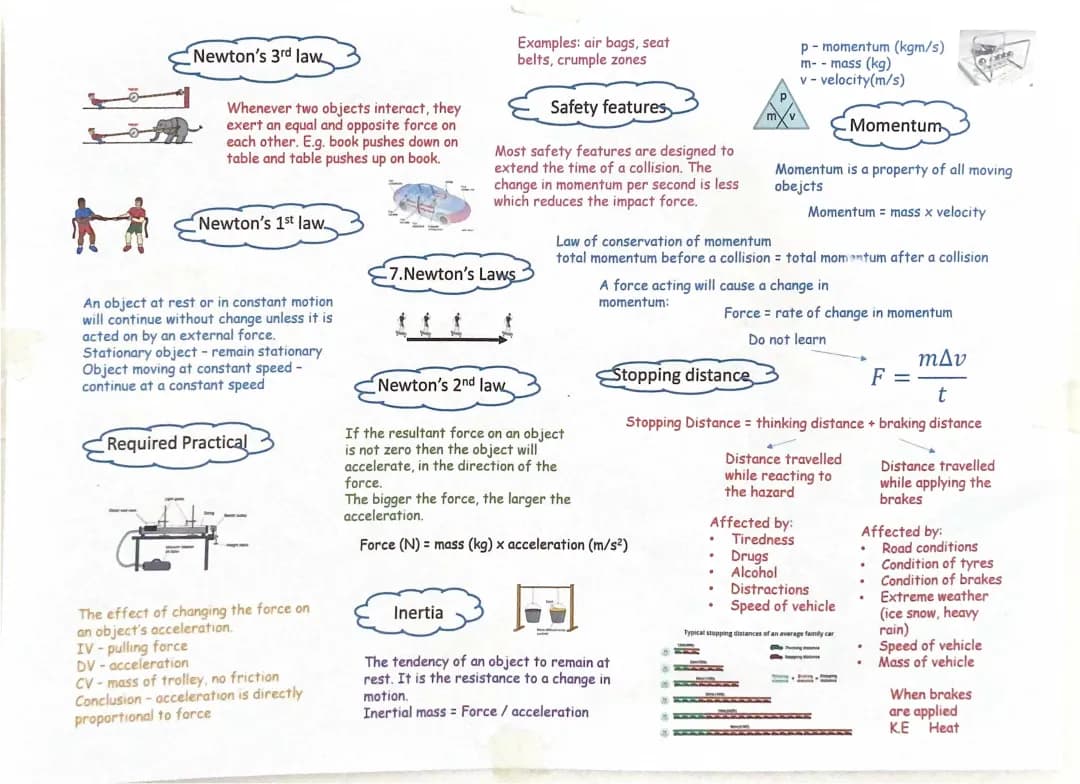 Newton's 3rd law
Whenever two objects interact, they
exert an equal and opposite force on
each other. E.g. book pushes down on
table and table pushes up on book.
Newton's 1st law
An object at rest or in constant motion
will continue without change unless it is
acted on by an external force.
Stationary object – remain stationary
Object moving at constant speed –
continue at a constant speed
Required Practical
Light gates
String
The effect of changing the force on
an object's acceleration.
IV – pulling force
DV – acceleration
CV – mass of trolley, no friction
Conclusion – acceleration is directly
proportional to force
7.Newton's Laws
Newton's 2nd law
If the resultant force on an object
is not zero then the object will
accelerate, in the direction of the
force.
The bigger the force, the larger the
acceleration.
Force (N) = mass (kg) x acceleration (m/s²)
Inertia
The tendency of an object to remain at
rest. It is the resistance to a change in
motion.
Inertial mass = Force / acceleration
Examples: air bags, seat
belts, crumple zones
Safety features
Most safety features are designed to
extend the time of a collision. The
change in momentum per second is less
which reduces the impact force.
p – momentum (kgm/s)
m- - mass (kg)
v – velocity(m/s)
p
m v
Momentum
Momentum is a property of all moving
obejcts
Momentum = mass x velocity
Law of conservation of momentum
total momentum before a collision = total momentum after a collision
A force acting will cause a change in
momentum:
Force = rate of change in momentum
Do not learn
F = mΔv
t
Stopping distance
Stopping Distance = thinking distance + braking distance
Distance travelled
while reacting to
the hazard
Affected by:
• Tiredness
• Drugs
• Alcohol
• Distractions
• Speed of vehicle
Distance travelled
while applying the
brakes
Affected by:
• Road conditions
• Condition of tyres
• Condition of brakes
• Extreme weather
(ice snow, heavy
rain)
• Speed of vehicle
• Mass of vehicle
When brakes
are applied
K.E Heat
Typical stopping distances of an average family car
Thinking distance
Stopping distance